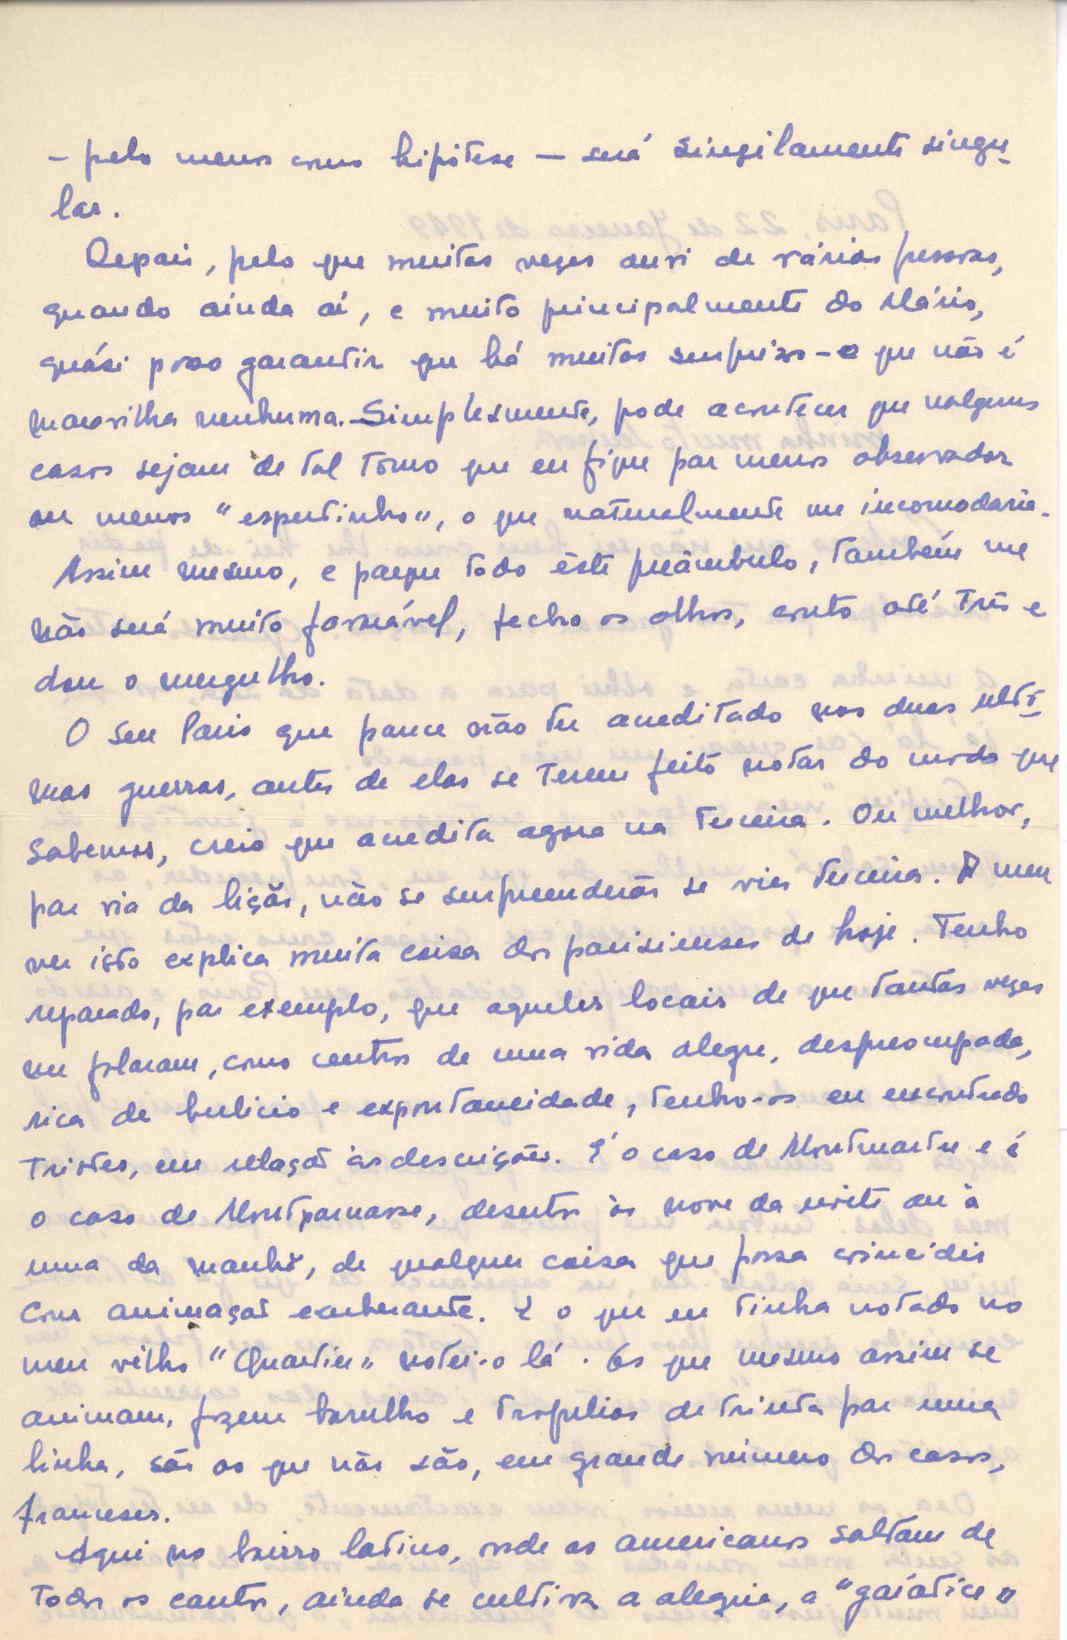 – pelo menos como hipótese – será singilamente singu-
lar.
Depois, pelo que muitas vezes ouvi de várias pessoas,
quando ainda aí, e muito principalmente do Mário,
quási posso garantir que há muitas surprezas – o que não é
maravilha nenhuma. Simplesmente, pode acontecer que nalguns
casos sejam de tal tomo que eu fique por menos observador
ou menos "espertinho", o que naturalmente me incomodaria.
Assim mesmo, e porque todo êste preâmbulo, também me
não será muito favorável, fecho os olhos, conto até três e
dou o mergulho.
O seu Paris que parece não ter acreditado nas duas últi-
mas guerras, antes de elas se terem feito notar do modo que
sabemos, creio que acredita agora na terceira. Ou melhor,
por via da lição, não se surpreenderão se vier terceira. A meu
ver isto explica muita coisa dos parisienses de hoje. Tenho
reparado, por exemplo, que aqueles locais de que tantas vezes
me falaram, como centros de uma vida alegre, despreocupada,
rica de bulicio e expontaneidade, tenho-os eu encontrado
tristes, em relação às descrições. É o caso de Montmartre e é
o caso de Montparnasse, desertos às nove da noite ou à
uma da manhã, de qualquer coisa que possa coincidir
com animação exuberante. E o que eu tinha notado no
meu velho "Quartier" notei-o lá. Os que mesmo assim se
animam, fazem barulho e tropelias de trinta por uma
linha, são os que não são, em grande número dos casos,
franceses.
Aqui no bairro latino, onde os americanos saltam de
todos os cantos, ainda se cultiva a alegria, a "gaiatice"